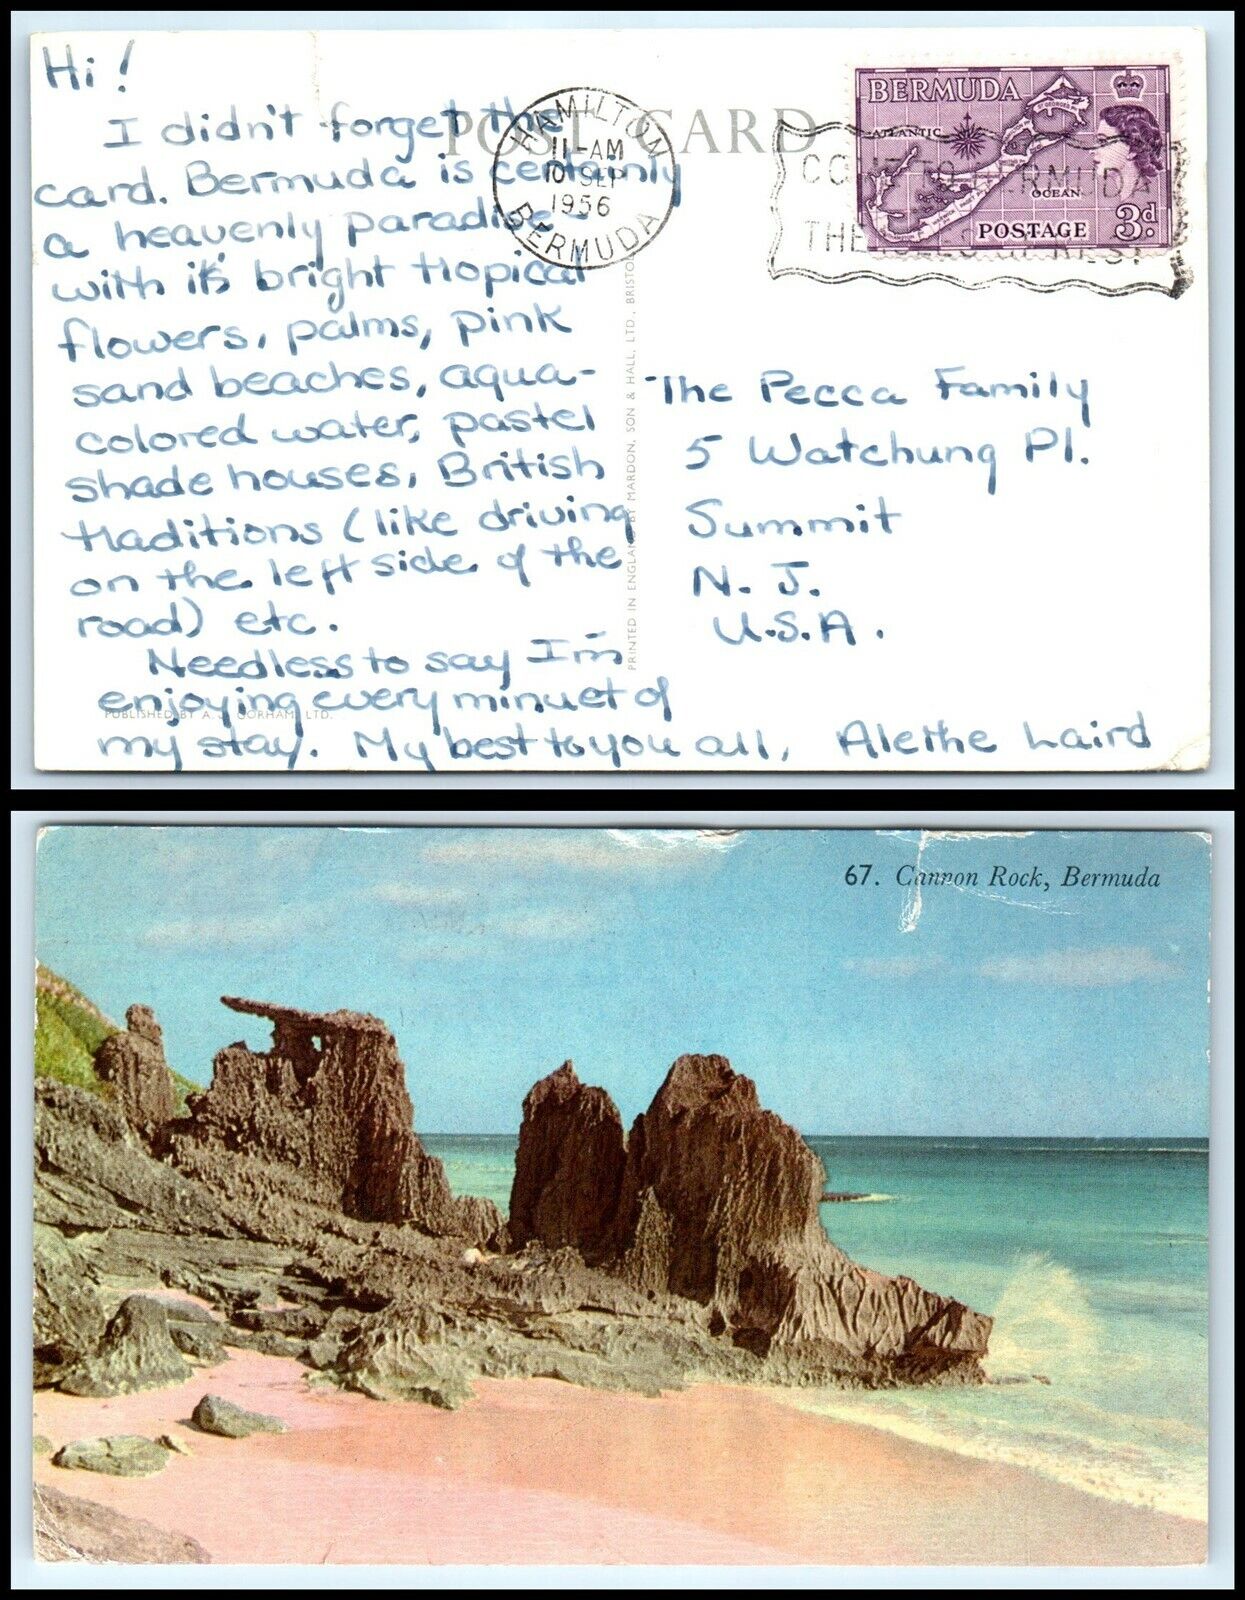 Hi!
I didn't forget the
card. Bermuda is certainly
a heavenly paradise
with it's bright tropical
flowers, palms, pink
sand beaches, aqua-
colored water, pastel
shade houses, British
traditions (like driving
on the left side of the
road) etc.
Needless to say I'm
enjoying every minuet of
my stay. My best to you all, Alethe Laird
POST CARD
HAMILTON
11-AM
10 SEP
1956
BERMUDA
BERMUDA
ST GEORGES
ATLANTIC
OCEAN
POSTAGE 3d.
COME TO BERMUDA
THE ISLES OF REST
The Pecca Family
5 Watchung Pl.
Summit
N. J.
U.S.A.
PRINTED IN ENGLAND BY MARDON, SON & HALL, LTD., BRISTOL
PUBLISHED BY A. J. GORHAM, LTD.
67. Cannon Rock, Bermuda